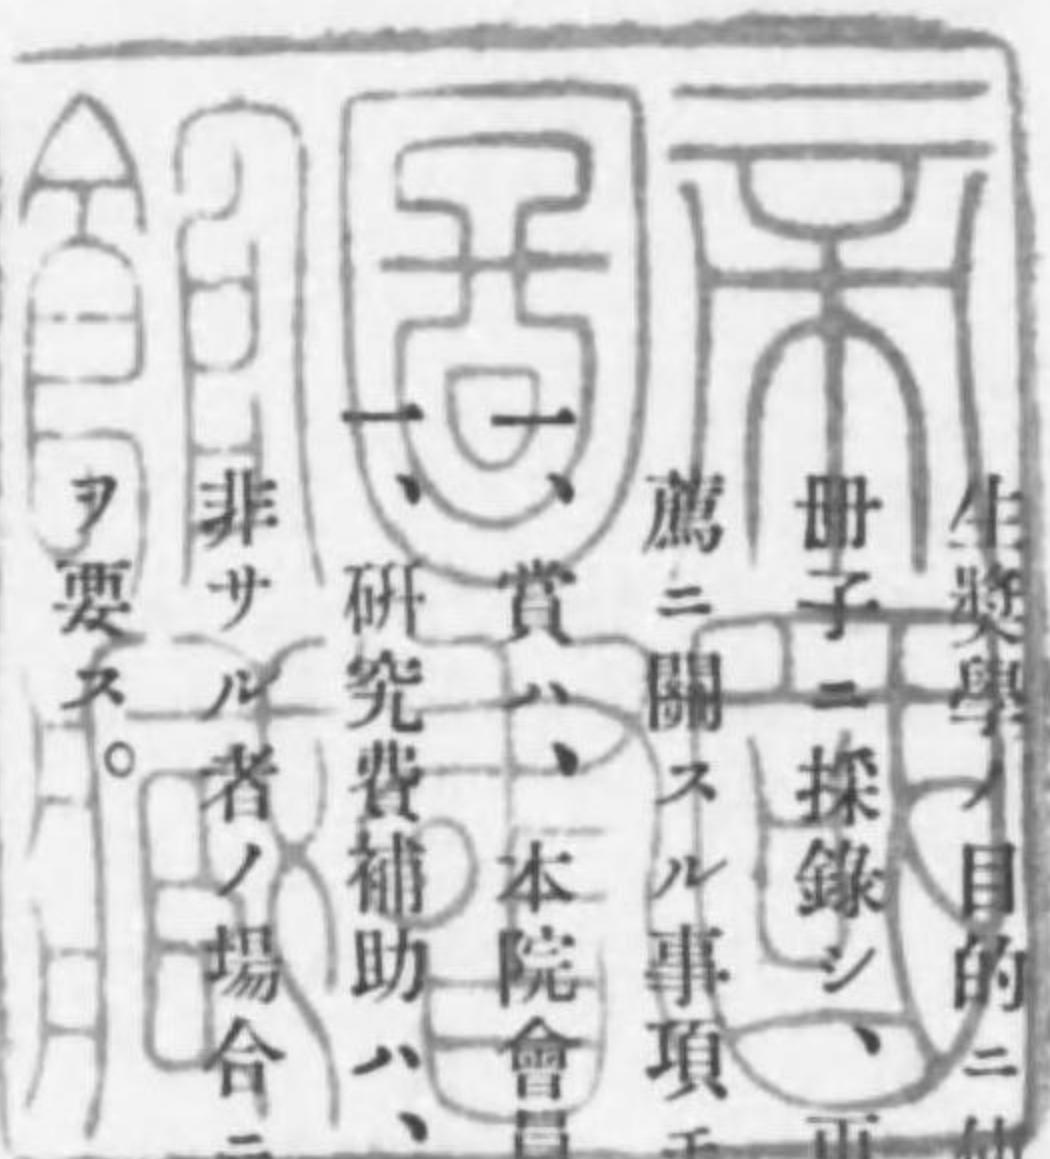 生奬學ノ目的ニ
册子ニ採錄シ、
薦ニ關スル事項
一、賞ハ、本院會員
一、硏究費補助ハ、
非サル者ノ場合ニ
ヲ要ス。